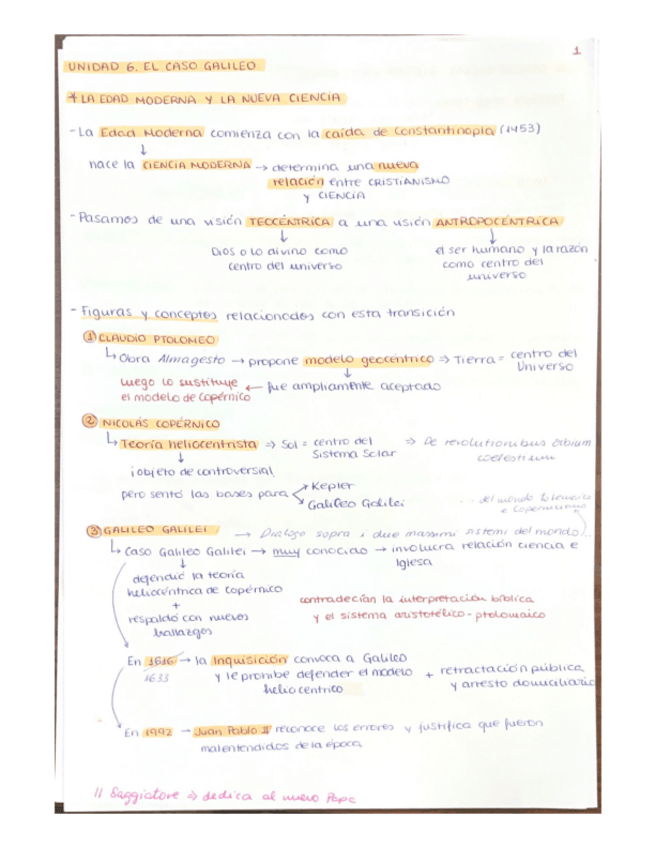 1
UNIDAD 6. EL CASO GALILEO
* LA EDAD MODERNA Y LA NUEVA CIENCIA
- La Edad Moderna comienza con la caída de Constantinopla (1453)
↓
nace la CIENCIA MODERNA → determina una nueva
relación entre CRISTIANISMO
y CIENCIA
- Pasamos de una visión TEOCÉNTRICA a una visión ANTROPOCÉNTRICA
↓ ↓
Dios o lo divino como el ser humano y la razón
centro del universo como centro del
universo
- Figuras y conceptos relacionados con esta transición
① CLAUDIO PTOLOMEO
↳ Obra Almagesto → propone modelo geocéntrico ⇒ Tierra = centro del
Universo
↓
luego lo sustituye ← fue ampliamente aceptado
el modelo de Copérnico
② NICOLÁS COPÉRNICO
↳ Teoría heliocentrista ⇒ Sol = centro del ⇒ De revolutionibus orbium
Sistema Solar coelestium
↓
¡objeto de controversia!
pero sentó las bases para → Kepler
→ Galileo Galilei
... del mondo tolemaico
e copernicano
③ GALILEO GALILEI → Dialogo sopra i due massimi sistemi del mondo...
↳ Caso Galileo Galilei → muy conocido → involucra relación ciencia e
Iglesia
↓
defendió la teoría
heliocéntrica de Copérnico
+
respaldó con nuevos
hallazgos
contradecían la interpretación bíblica
y el sistema aristotélico-ptolomaico
En 1616 → la Inquisición convoca a Galileo
1633 y le prohibe defender el modelo + retractación pública
heliocéntrico y arresto domiciliario
En 1992 → Juan Pablo II reconoce los errores y justifica que fueron
malentendidos de la época
Il Saggiatore ⇒ dedica al nuevo Papa